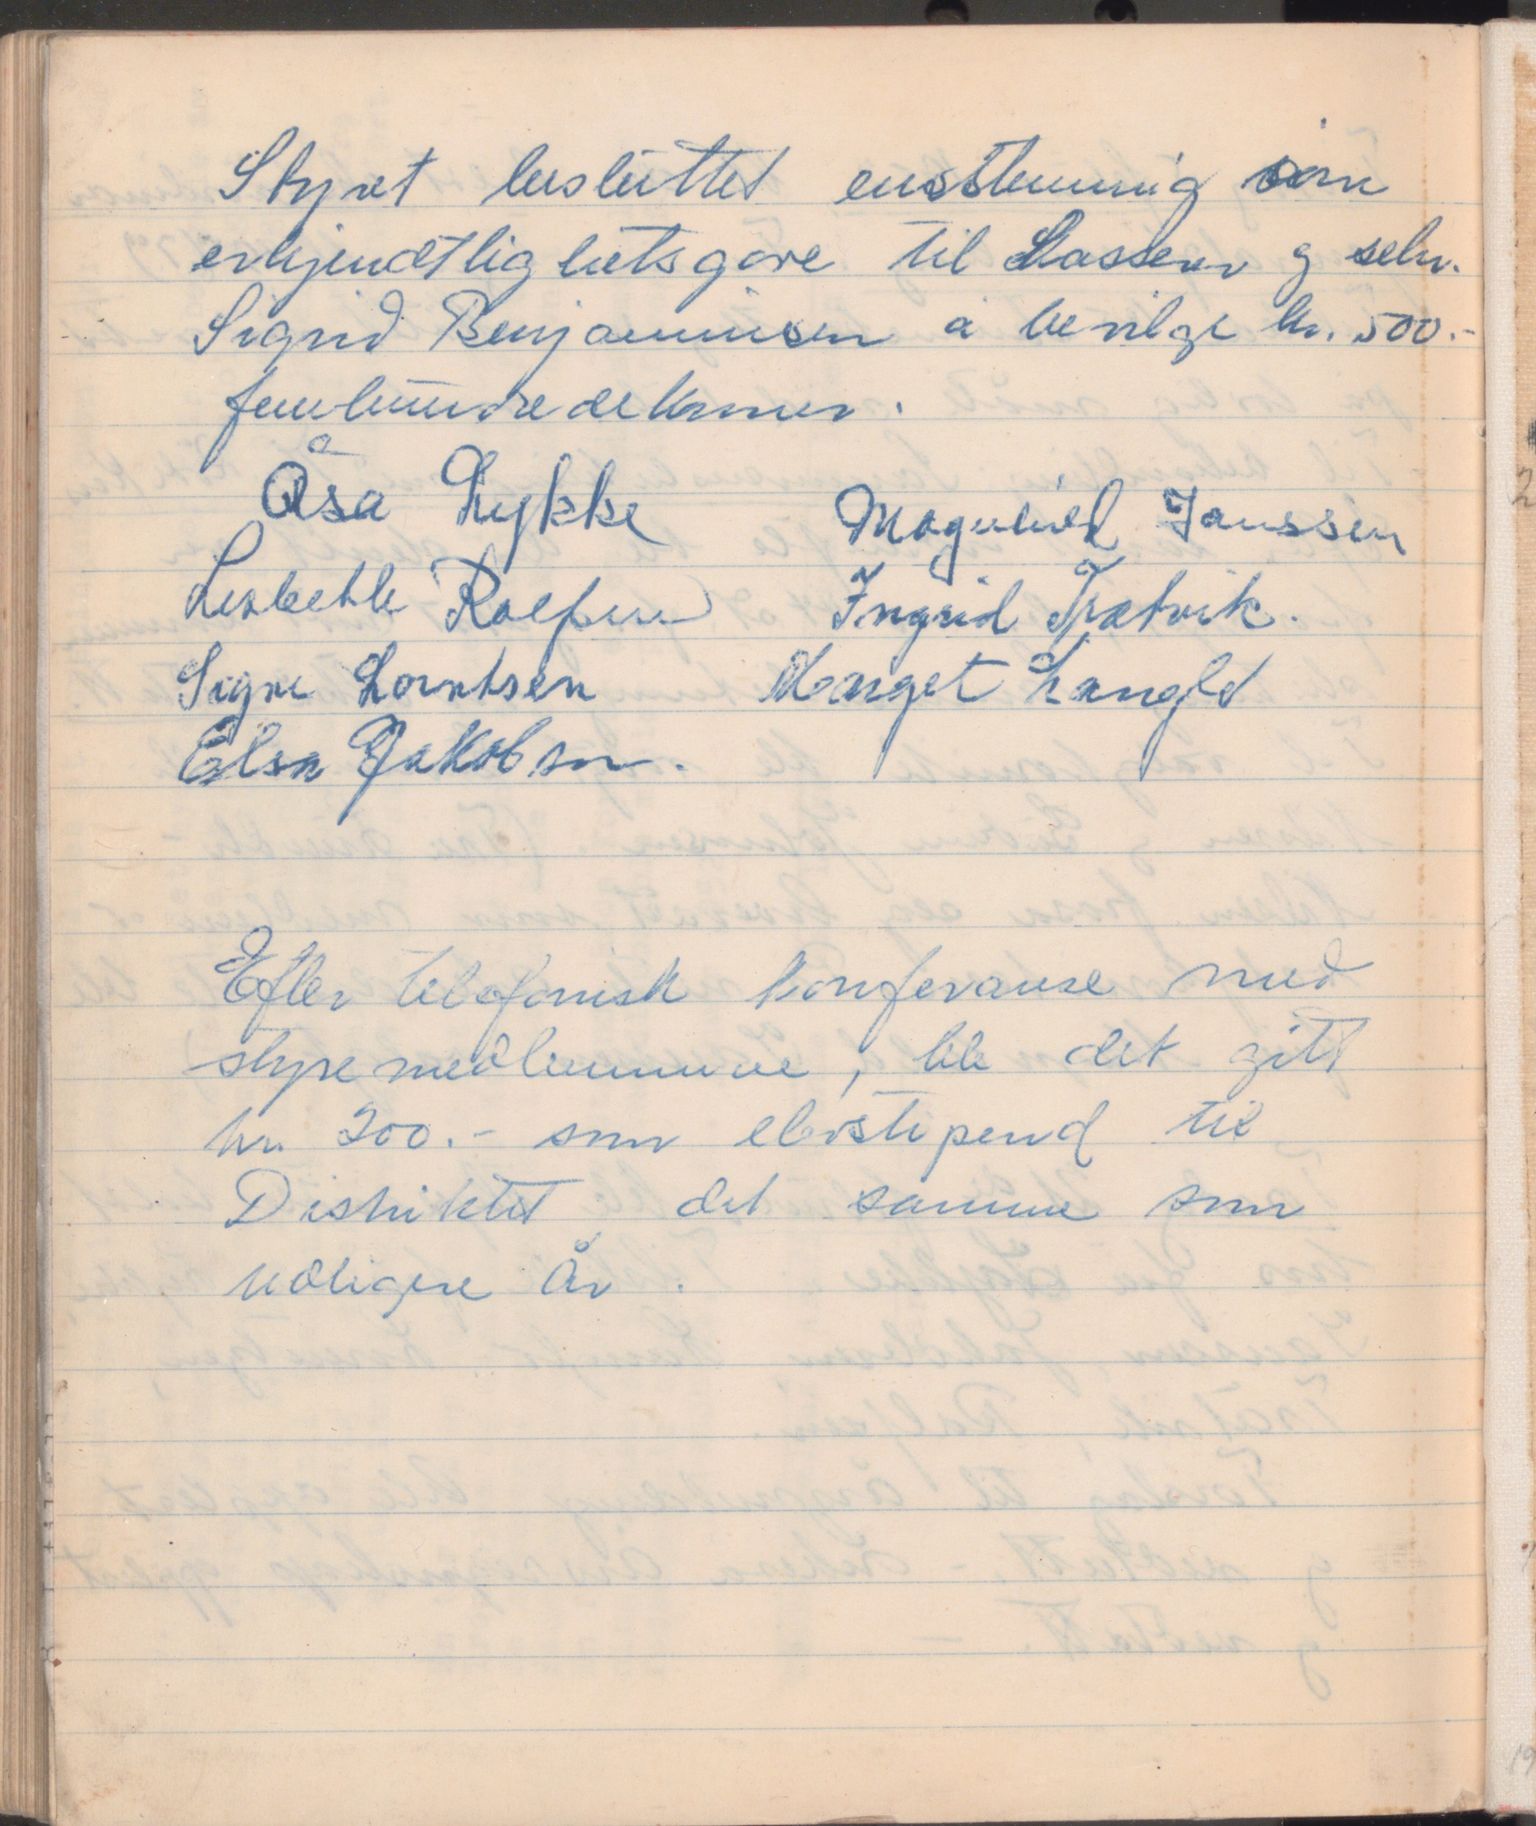 Styret besluttet enstemmig som
erkjendtlighetsgave til kasserer og sekr.
Sigrid Benjaminsen å bevilge kr. 500.-
femhundredekroner.
Åsa Lykke Magnhild Janssen
Lisbethe Rolfsen Ingrid Trætvik.
Signe Lorntsen Marget Langld
Elsa Jakobsen.
Efter telefonisk konferanse med
styremedlemmene, ble det gitt
kr. 200.- som elevstipend til
Distriktet, det samme som
tidligere år.